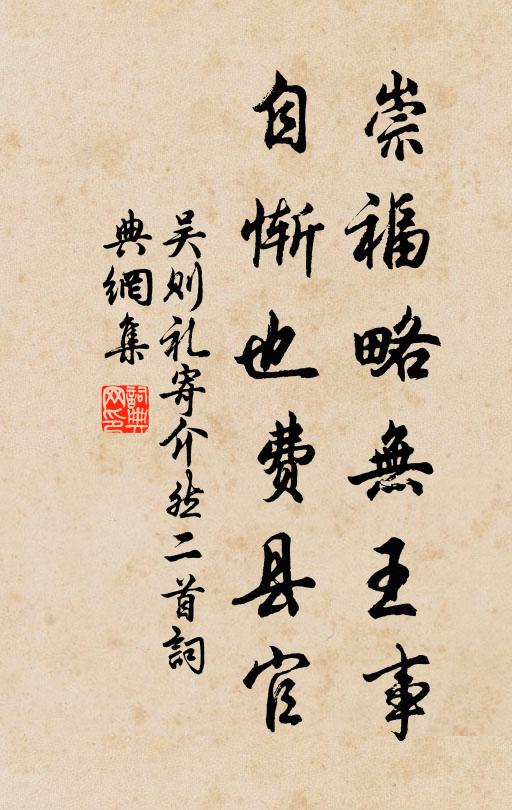 崇福略無王事
自惭也费县官
吴则礼寄介然二首詞
典網集
詞典网印